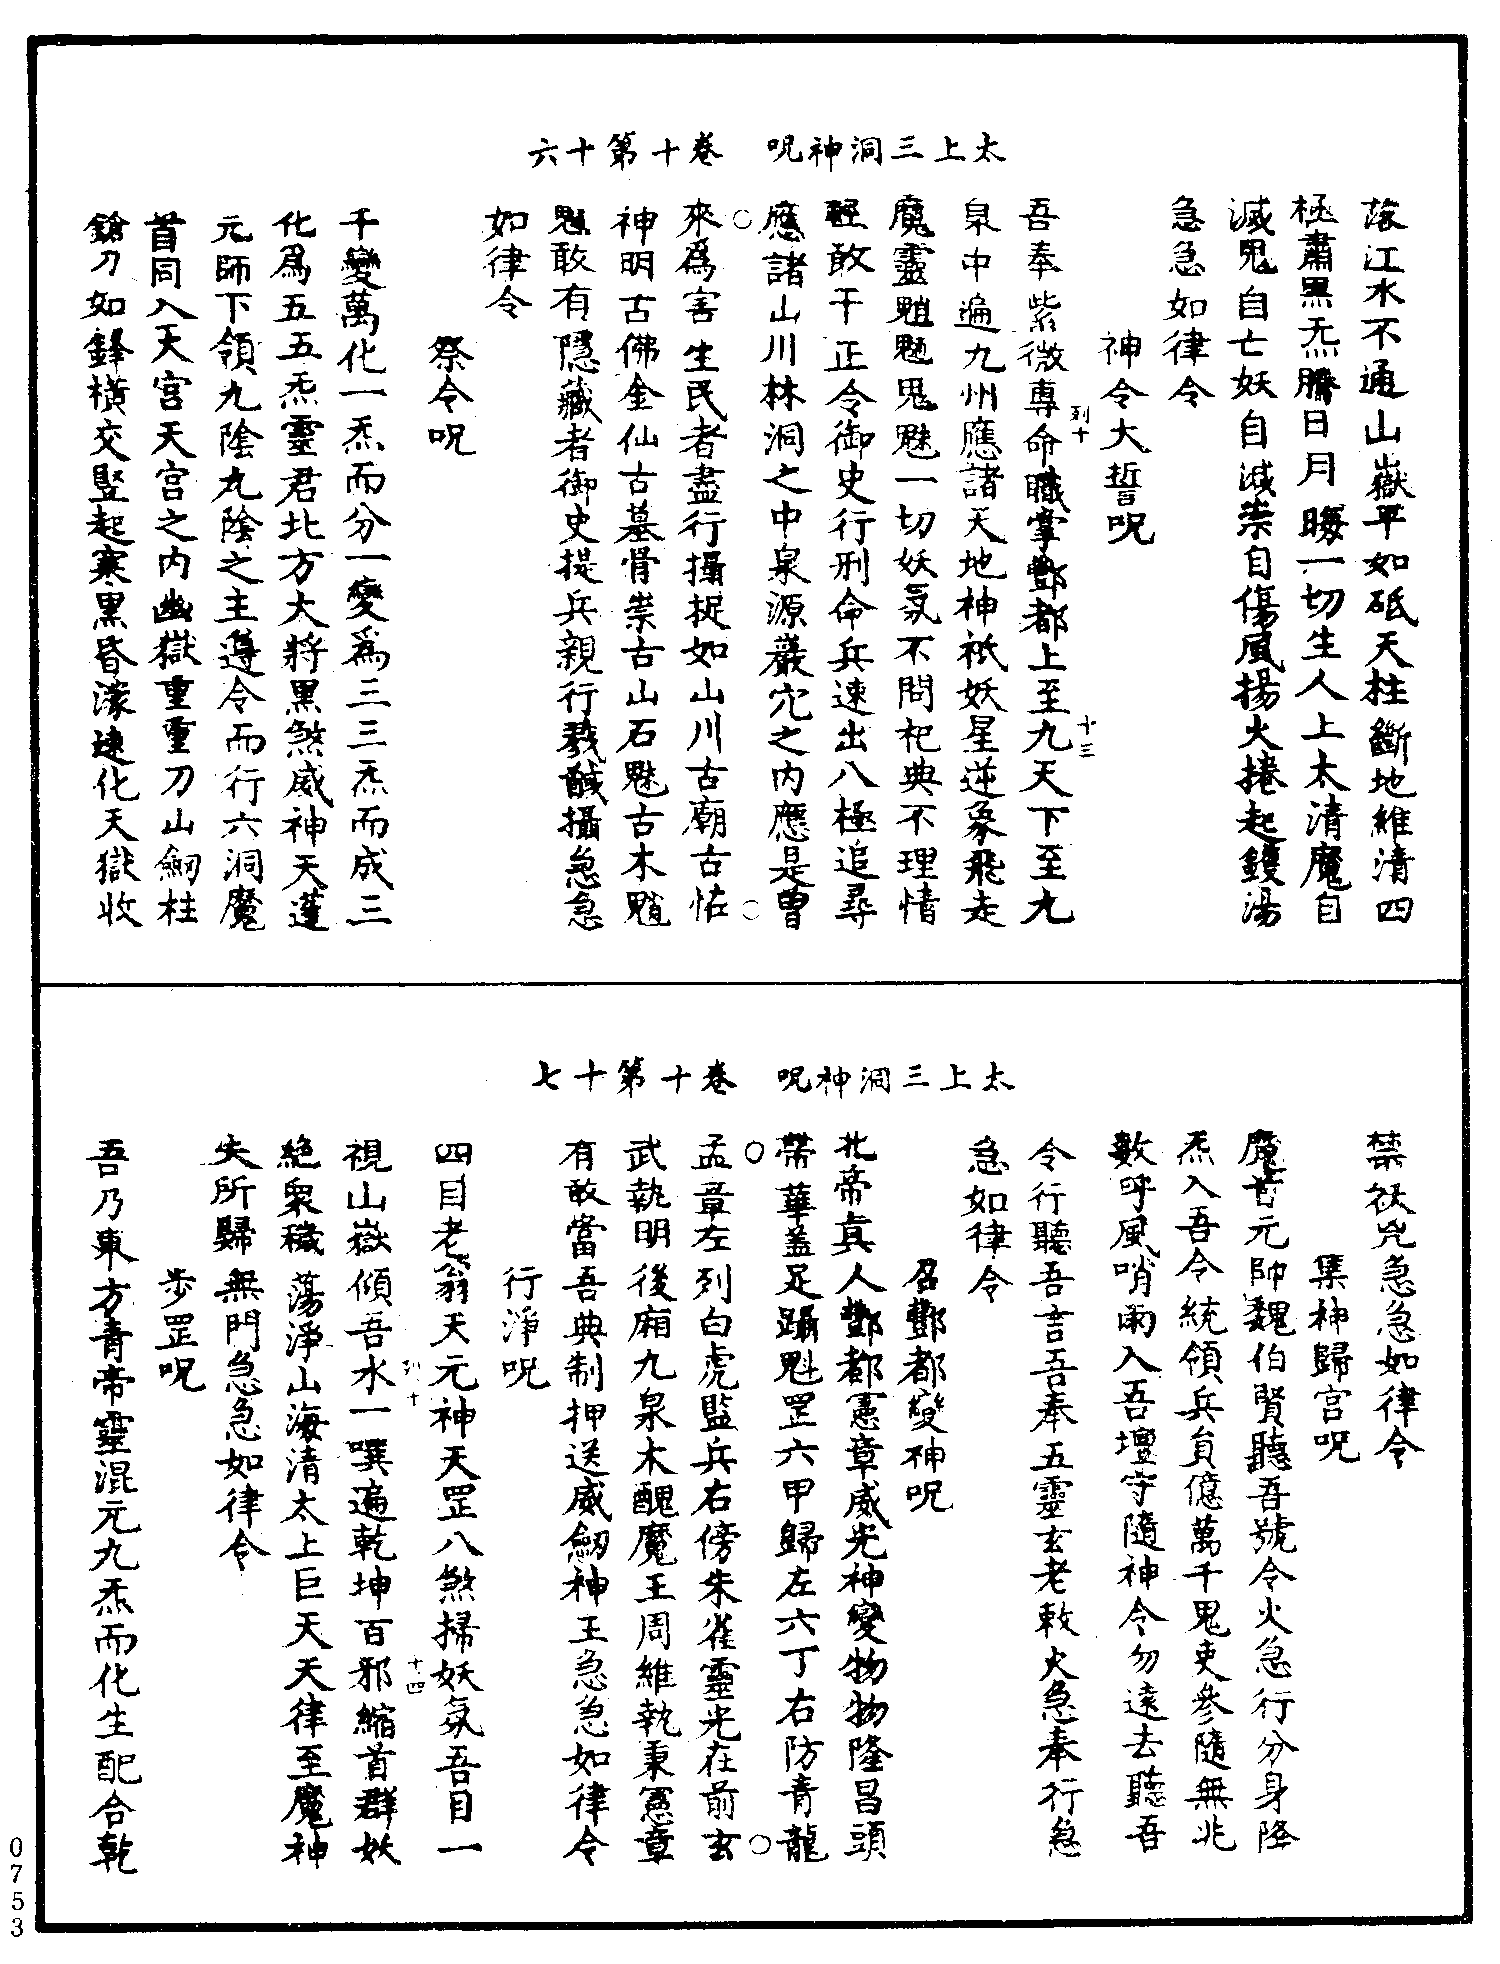 太上三洞神呪　卷十第十六
海江水不通山嶽平如砥天柱斷地維清四
極肅黑炁騰日月暍一切生人上太清魔自
滅鬼自亡妖自滅祟自傷風揚火捲起鑊湯
急急如律令
神令大誓呪
吾奉紫微專命職掌酆都上至九天下至九
泉中遍九州應諸天地神祇妖星逆象飛走
魔靈魈魎鬼魅一切妖氛不問祀典不理情
輕敢干正令御史行刑命兵速出八極追尋
應諸山川林洞之中泉源巖穴之内應是曾
來爲害生民者盡行攝捉如山川古廟古怪
神明古佛金仙古墓骨祟古山石魅古木魈
魁敢有隱藏者御史提兵親行戮馘攝急急
如律令
祭令呪
千變萬化一炁而分一變爲三三炁而成三
化爲五五炁靈君北方大將黑煞威神天蓬
元帥下領九陰九陰之主遵令而行六洞魔
首同入天宮天宮之内幽獄重重刀山劒柱
鎗刀如鋒橫交豎起寒黑昏濛速化天獄收
列十
十三
太上三洞神呪　卷十第十七
禁祅兇急急如律令
集神歸宮呪
魔首元帥魏伯賢聽吾號令火急行分身降
炁入吾令統領兵負億萬千鬼吏參隨無兆
數呼風哨雨入吾壇守隨神令勿遠去聽吾
令行聽吾言吾奉五靈玄老敕火急奉行急
急如律令
召酆都變神呪
北帝真人酆都憲章威光神變物物隆昌頭
帶華蓋足躡魁罡六甲歸左六丁右防青龍
孟章左列白虎監兵右傍朱雀靈光在前玄
武執明後廂九泉木醜魔王周維執秉憲章
有敢當吾典制押送威劒神王急急如律令
行淨呪
四目老翁天元神天罡八煞掃妖氛吾目一
視山嶽傾吾水一噀遍乾坤百邪縮首群妖
絶衆穢蕩淨山海清太上巨天天律至魔神
失所歸無門急急如律令
步罡呪
吾乃東方青帝靈混元九炁而化生配合乾
列十
十四
0753